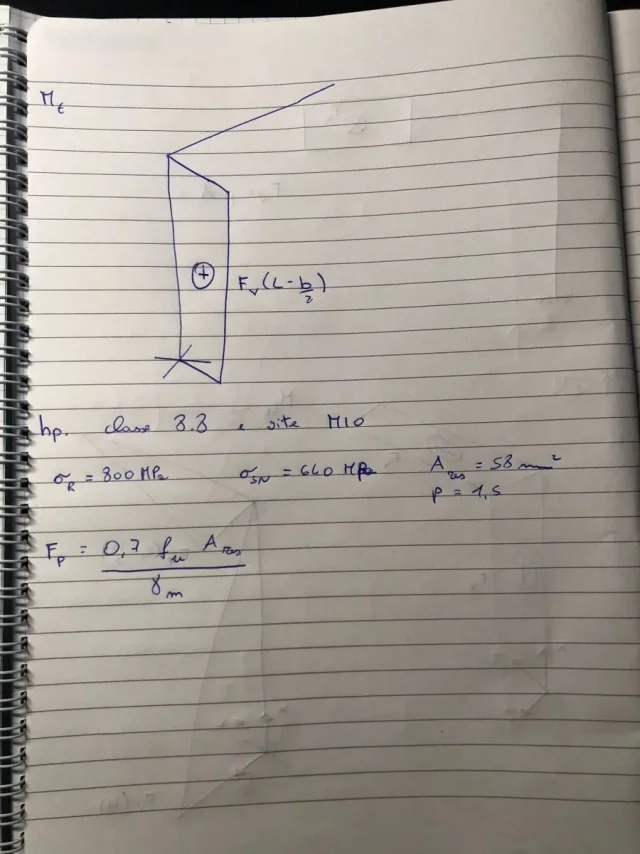 M_t
F_v (L - b/2)
hp. classe 8.8 e vite M10
σ_R = 800 MPa σ_SN = 640 MPa A_res = 58 mm²
p = 1,5
F_p = 0,7 f_u A_res
γ_m